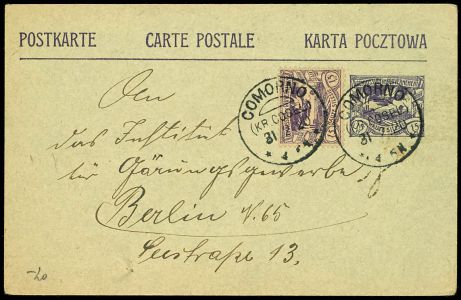 POSTKARTE CARTE POSTALE KARTA POCZTOWA
COMORNO
(KR. COSEL)
31
20
4
COMORNO
(KR. COSEL)
31
20
4
15
15
An
das Institut
für Gärungsgewerbe
Berlin N. 65
Seestraße 13.